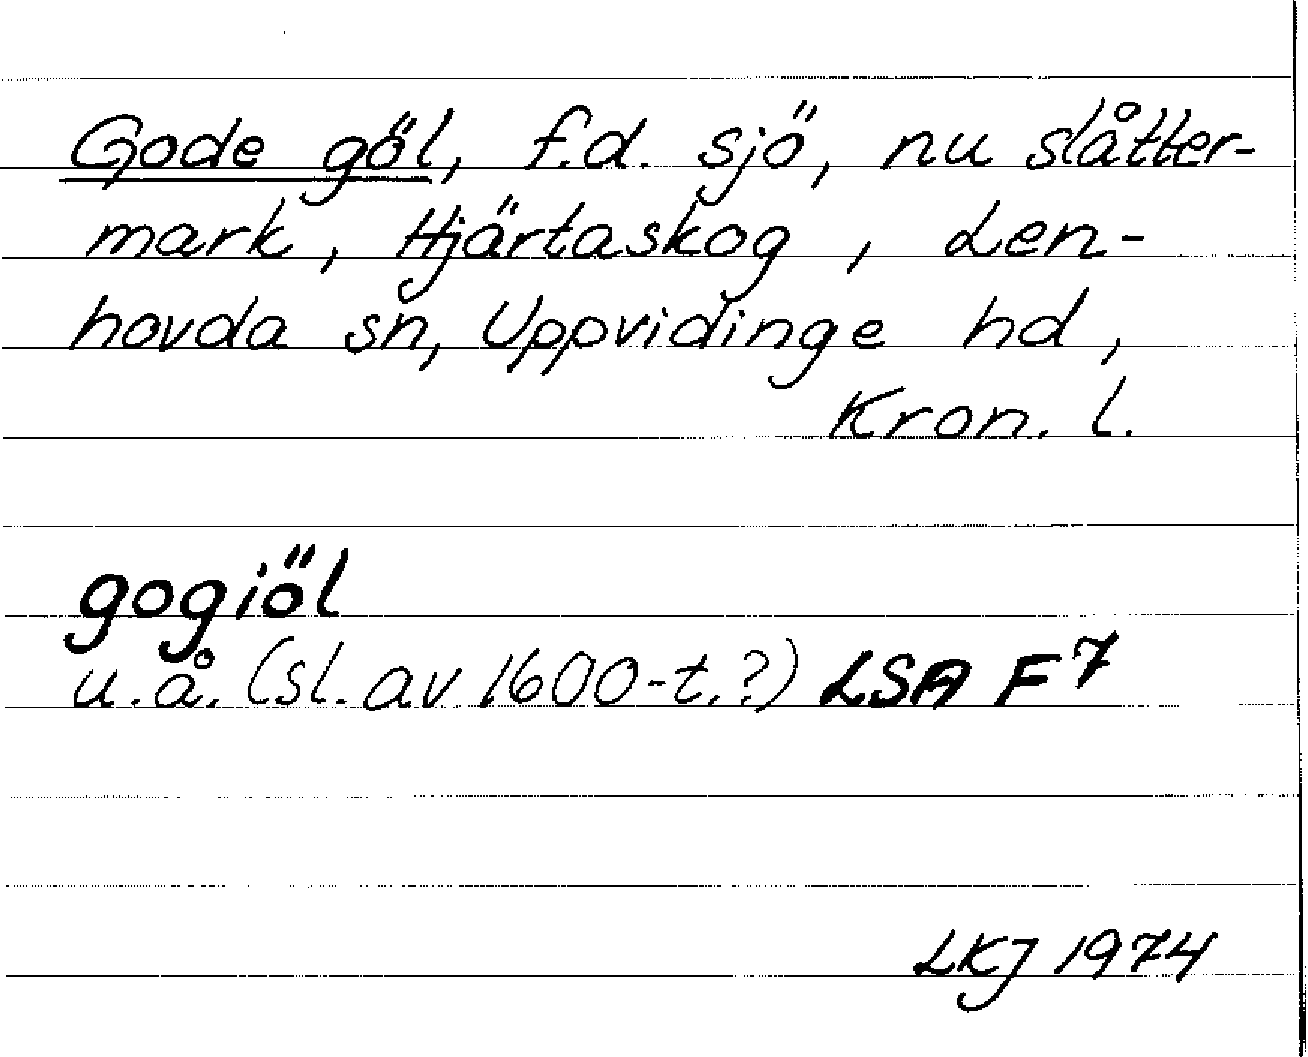 Gode göl, f.d. sjö, nu slåtter-
mark, Hjärtaskog, Len-
hovda sn, Uppvidinge hd,
Kron. l.
gogiöl
u.å. (sl. av 1600-t.?) LSA F7
LKJ 1974